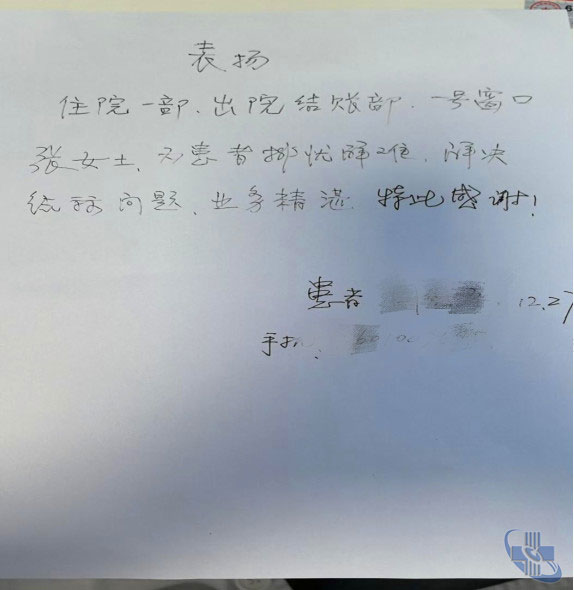 表扬
住院一部、出院结账部、一号窗口
张女士,为患者排忧解难,解决
问题、业务精湛.特此感谢!
患者 12.27
手机: